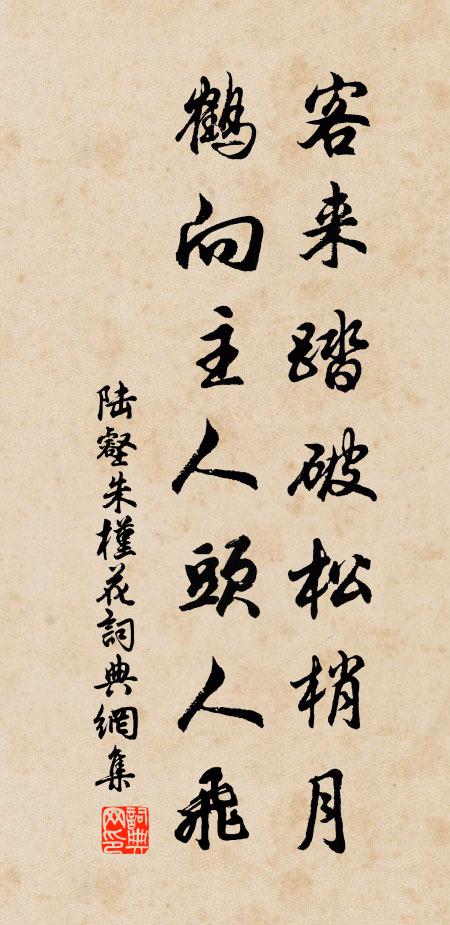 客来踏破松梢月
鹤向主人頭人飛
陆壑朱槿花詞典網集
詞典网印